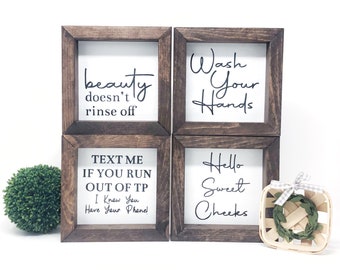 beauty
doesn't
rinse off
Wash
Your
Hands
TEXT ME
IF YOU RUN
OUT OF TP
I Know You
Have Your Phone!
Hello
Sweet
Cheeks